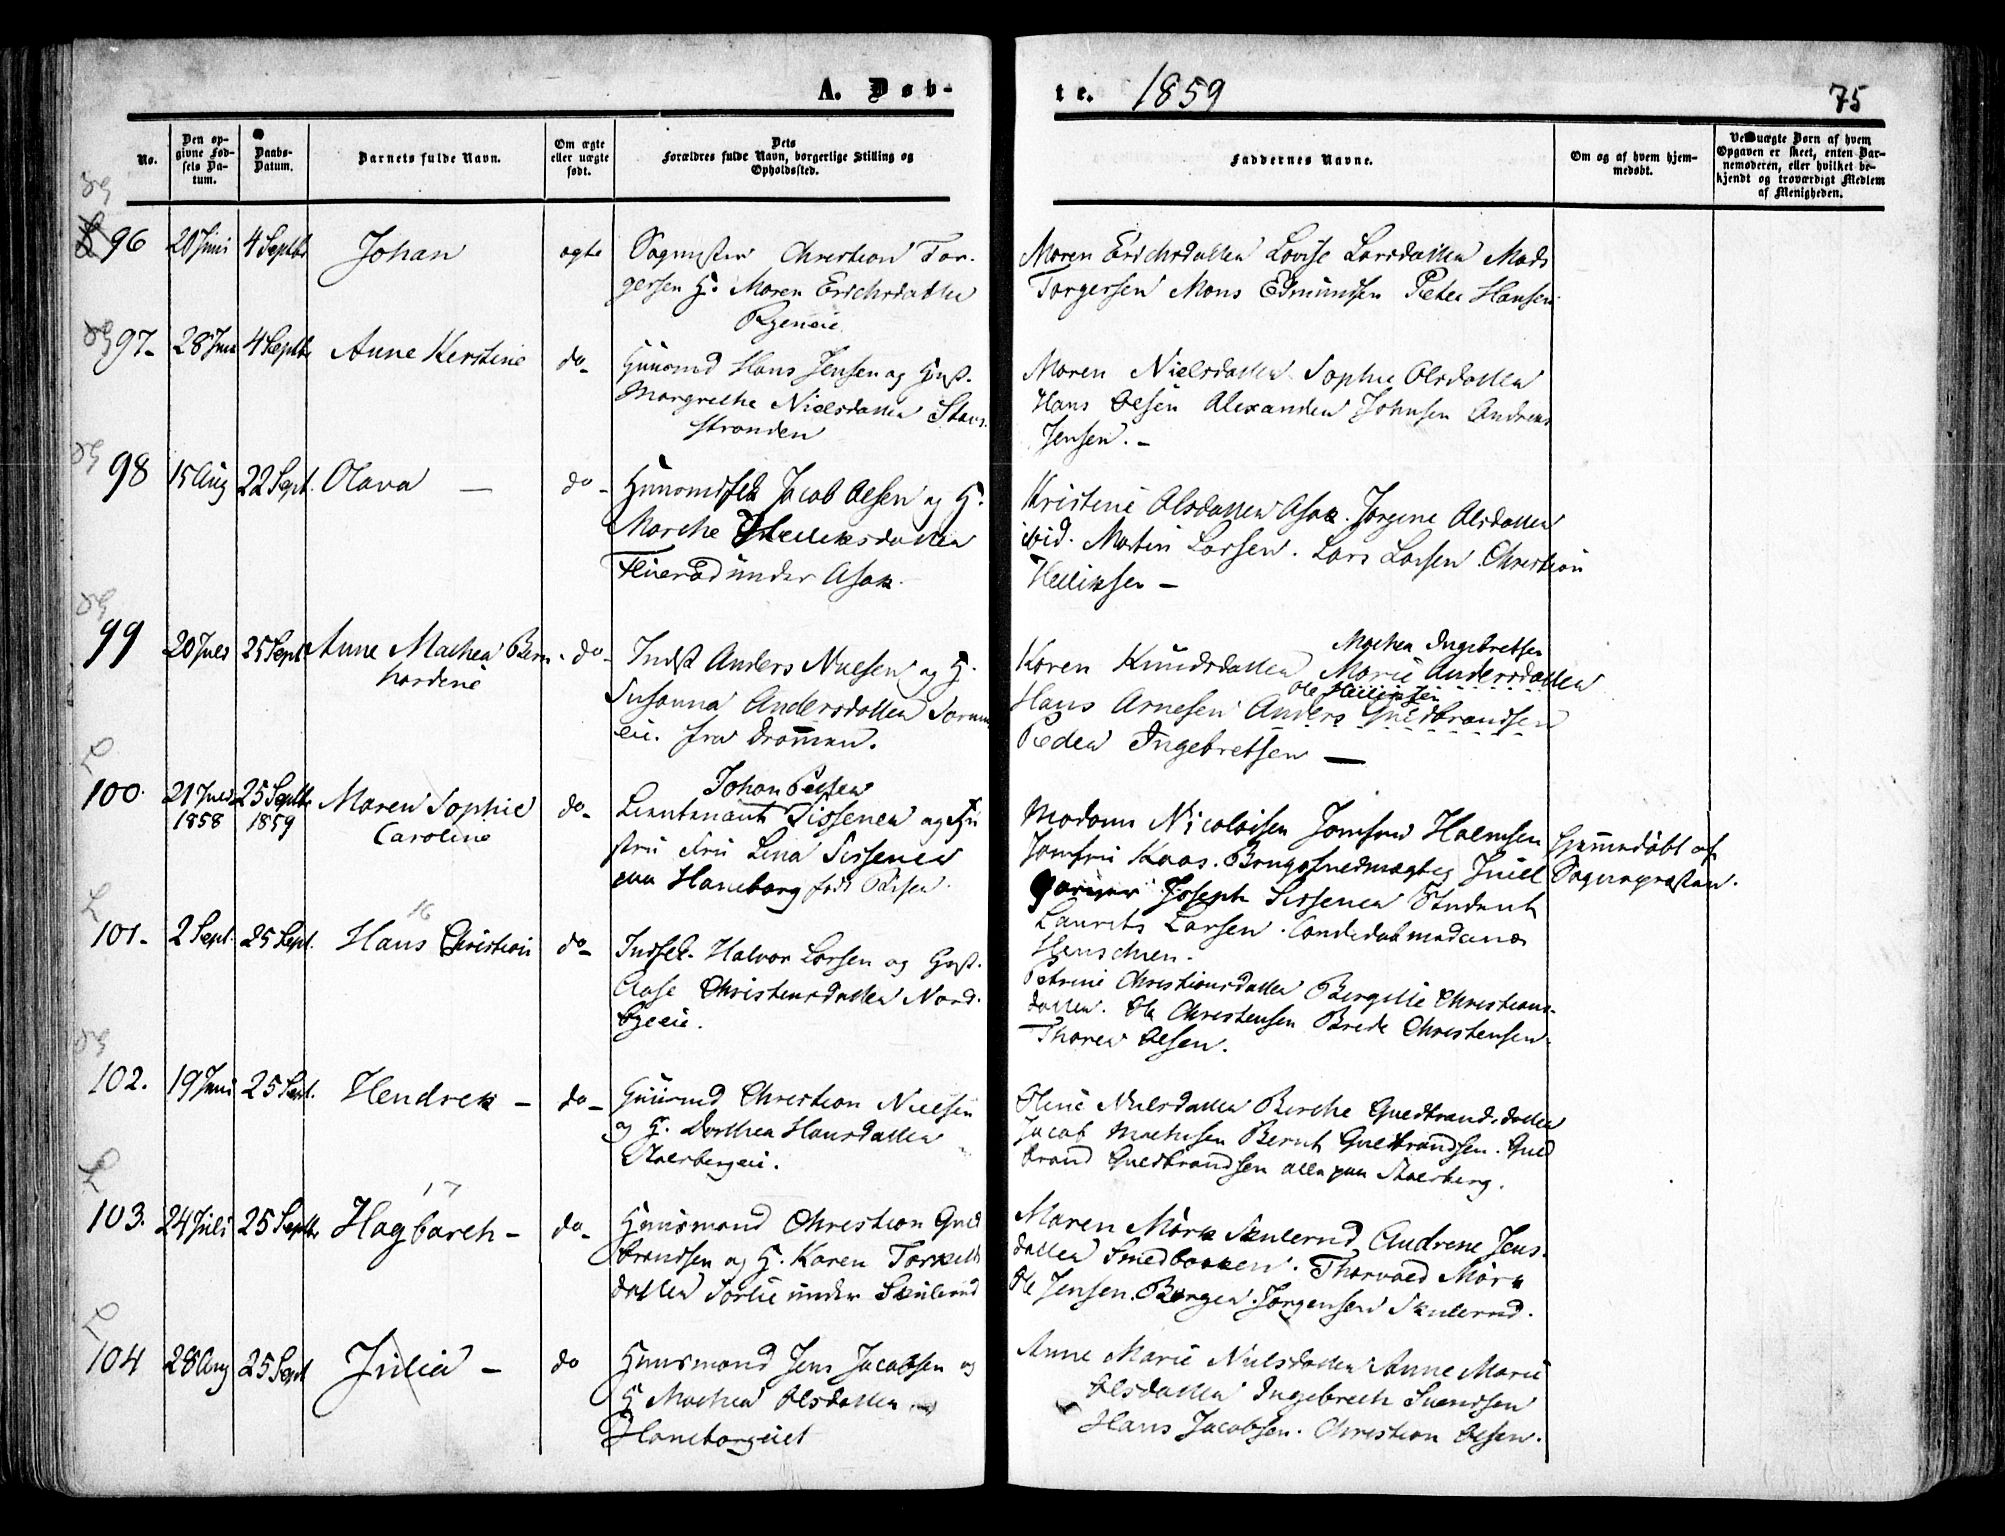 A. Døb-
te. 1859
75
No.
Den op-
givne Fød-
sels Da-
tum.
Daabs-
Datum.
Barnets fulde Navn.
Om ægte
eller uægte
født.
Dets
Forældres fulde Navn, borgerlige Stilling og
Opholdssted.
Faddernes Navne.
Om og af hvem hjem-
medøbt.
Ved uægte Børn af hvem
Opgaven er skeet, enten Bar-
nemoderen, eller hvilket be-
kjendt og troværdigt Medlem
af Menigheden.
96 20 Juni 4 Septbr Johan ægte
Christian Tor-
gersen H. Maren Erichsdatter
Maren Erichsdatter Lovise Larsdatter Mads
Torgersen Mons Edmundsen Peter Hansen
97- 28 Juni 4 Septbr Anne Kerstine do-
Huusmd Hans Jensen og Hust.
Margrethe Nielsdatter Stens-
stranden
Maren Nielsdatter Sophie Olsdatter
Hans Olsen Alexander Johnsen Andreas
Jensen. -
98 15 Aug 22 Sept. Olava - do-
Jacob Olsen og H.
Marthe
under Asak.
Kristine Olsdatter Asak. Jørgine Olsdatter
ibid. Martin Larsen. Lars Larsen. Christian
Helliksen -
99 20 Juli 25 Sept Anne Mathea Bern-
hardine
do-
Indst Anders Nielsen og H.
Susanna Andersdatter
eie. fra Drammen.
Mathea Ingebretsen
Karen Knudsdatter Marie Andersdatter
Ole Helliksen
Hans Arnesen Anders Guldbrandsen
Peder Ingebretsen -
100. 21 Juli 25 Septbr Maren Sophie do-
1858 1859 Caroline
Johan Petter
Lieutenant Sissener og Hu
stru Fru Lena Sissener
paa Haneborg født
Madam Nicolaisen Jomfru Holmsen
Jomfru Kaas. Brugsfuldmægtig Juell
Joseph Sissener Student
Laurits Larsen. Candidat
Henschien.
Hjemmedøbt af
Sognepræsten.
101- 2 Sept. 25 Sept. Hans Christian do-
16
Indst. Halvor Larsen og Hust.
Aase Christensdatter Nord-
byeeie.
Petrine Christiansdatter Bergitte Christians-
datter. Ole Christensen Brede Christensen.
Thorer Olsen.
102. 19 Juni 25 Sept. Hendrek - do-
Huusmd Christian Nielsen
og H. Dorthea Hansdatter
Oline Nielsdatter Berthe Guldbrandsdatter
Jacob Mathisen Bernt Guldbrandsen. Guld
brand Guldbrandsen alle paa
103. 24 Juli 25 Septbr Hagbarth - do-
17
Huusmand Christian Guld
brandsen og H. Karen Torkilds
datter Sorlie under Skulerud
Maren Mørk Skulerud Andrene Jens-
datter Smedbakken. Thorvald Mørk
Ole Jensen. Børger Jørgensen Skulerud.
104 28 Aug 25 Sept Julia - do
Huusmand Jens Jacobsen og
H Mathea Olsdatter
Haneborgeiet
Anne Marie Nielsdatter Anne Marie
Olsdatter Ingebreth Svendsen
Hans Jacobsen. Christian Olsen.